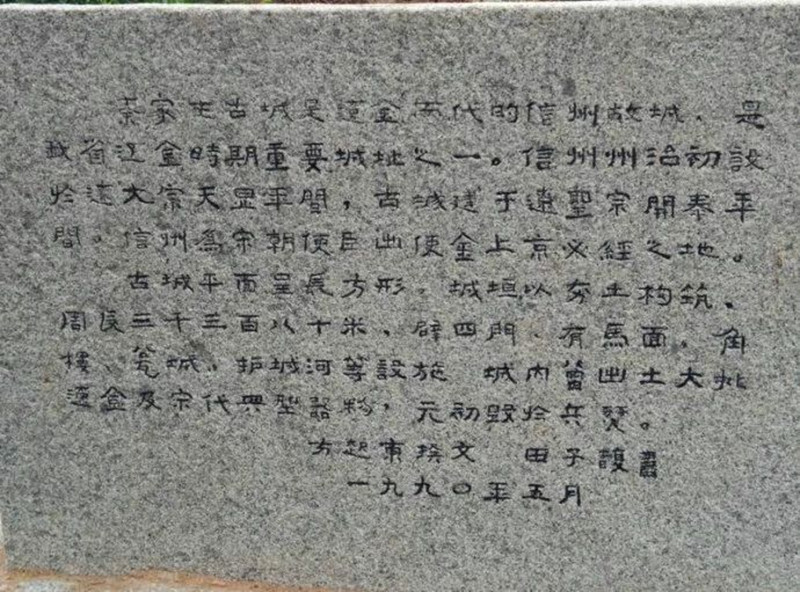 秦家屯古城是遼金两代的信州故城、是
我省辽金時期重要城址之一。信州州治初設
於遼大宗天显年間，古城建于遼聖宗開泰年
間。信州為宋朝使臣出使金上京必經之地。
古城平面呈長方形。城垣以夯土构筑。
周長三千三百八十米、辟四門、有馬面、角
樓、瓮城、护城河等設施 城内曾出土大批
遼金及宋代典型器物，元初毀於兵燹。
方起東撰文 田子馥書
一九九〇年五月